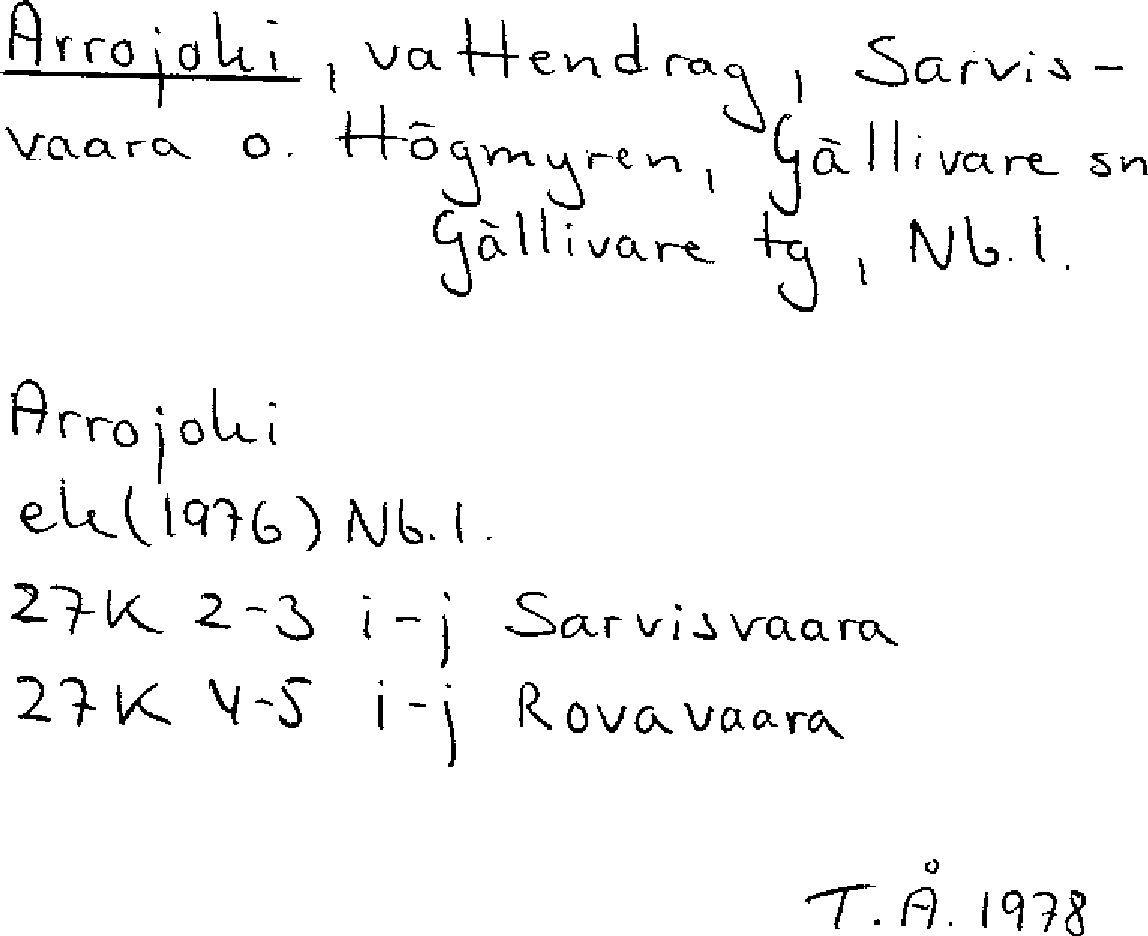 Arrojoki, vattendrag, Sarvis-
vaara o. Högmyren, Gällivare sn
Gällivare tg, Nb. l.
Arrojoki
ek (1976) Nb. l.
27K 2-3 i-j Sarvisvaara
27K 4-5 i-j Rovavaara
T. Å. 1978